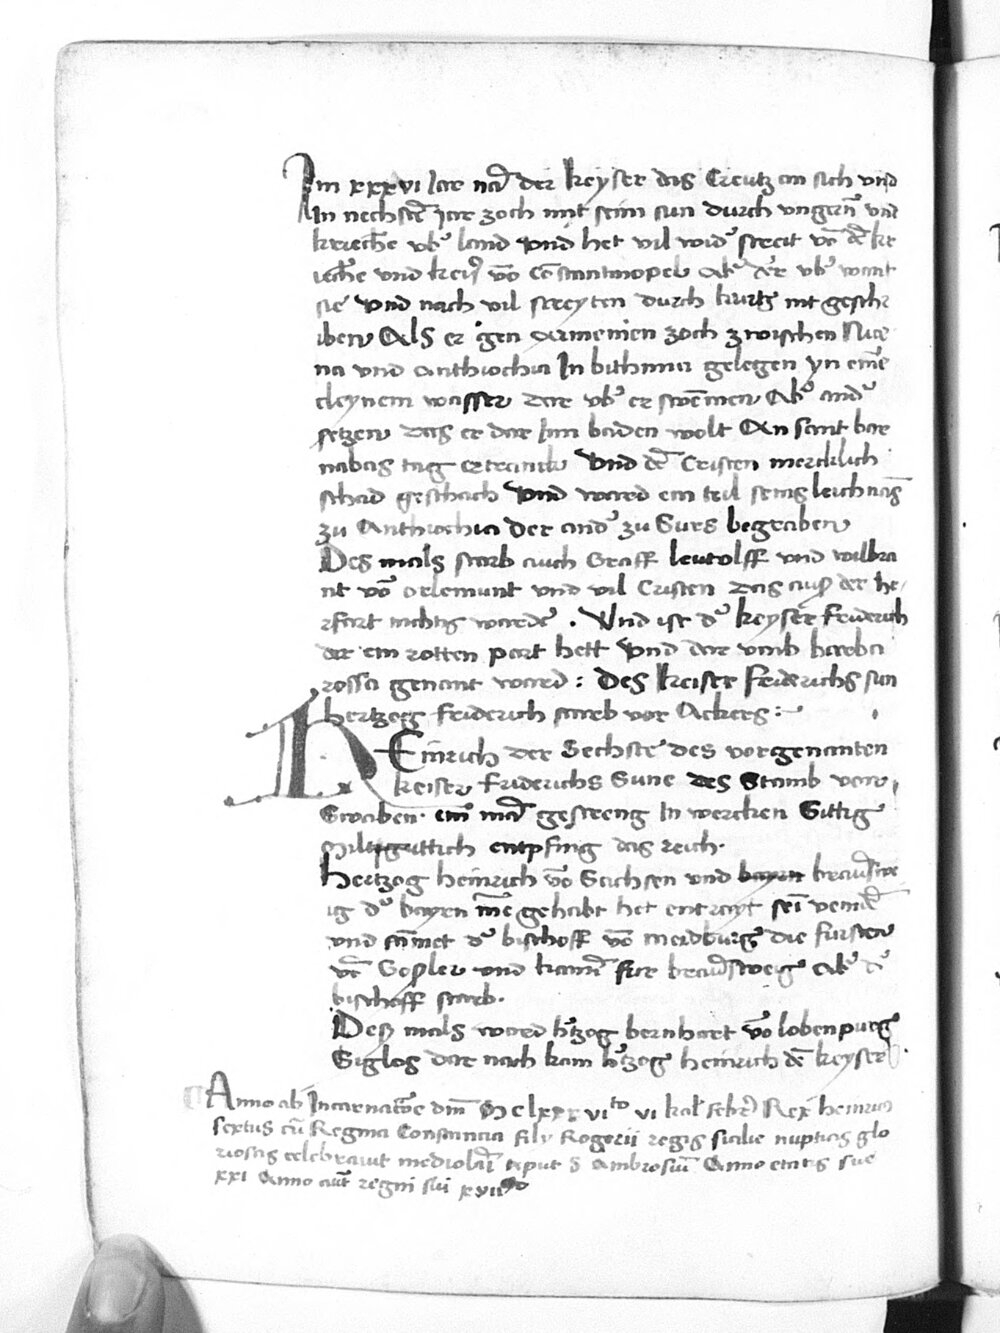 Im xxxvi Jar nam der keyser das Creutz an sich vnd
In nechstē Jar zoch mit seim sun durch vngern vnd
kriechē vb' land vnd het vil wid' streit vō dē kr
iechē vnd keis' vō Cōstantinopel Ab' der vb' want
sie vnd nach vil streyten durch kurtz nit geschr
iben Als er gen Armenien zoch zwischen Nice
na vnd Anthiochia In bithinia gelegen yn einē
cleynem wasser dar vb' er swēmen Ab' and'
setzen das er dar Inn baden wolt An sant bar
nabas tag ertranck Vnd dē Cristen mercklich
schad geschach Vnd ward ein teil seins leichnams
zu Anthiochia Der and' zu Surs begraben
Des mals starb auch Graff leutolff vnd wilbra
nt vō orlemunt vnd vil Cristen das auß der he
rfart nichtss wardē . Vnd ist d' keyser friderich
der ein rotten part hett Vnd dar vmb barba
rossa genant ward : Des keiser friderichs sun
hertzog friderich starb vor Ackers :~
HEinrich der Sechste des vorgenanten
keiser friderichs Sune des Stamb von
Swaben . ein mā gestreng In wercken Sittig
miltiguttich entpfing das reich .
hertzog heinrich vō Sachsen vnd bayrn braūswe
ig d' bayrn Inne gehabt het entran
vnd sāmet d' bischoff vō meidburg die fursten
vō Goslar vnd kamē fur braūsweig Ab' d'
bischoff starb .
Deß mals ward h'tzog bernhart vō lobenpurg
Siglos dar nach kam h'tzog heinrich dē keyser
Anno ab Incarnatōe dnī M clxxxvi to vi kal' febr' Rex heinric'
sextus cū Regina Constancia fily Rogerii regis sicilie nuptias glo
riosas celebrauit mediolani apud S Ambrosiū Anno etatis sue
xxi Anno aut regni sui xvii°